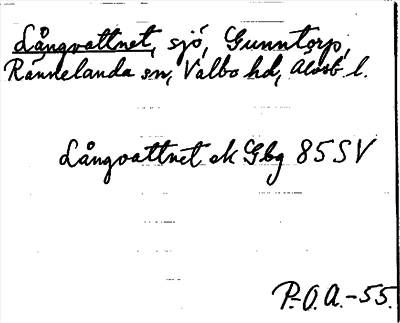 Långvattnet, sjö, Gunntorp,
Rännelanda sn, Valbo hd, Älvsb. l.
Långvattnet ek Gbg 85 SV
P.-O. A. -55.